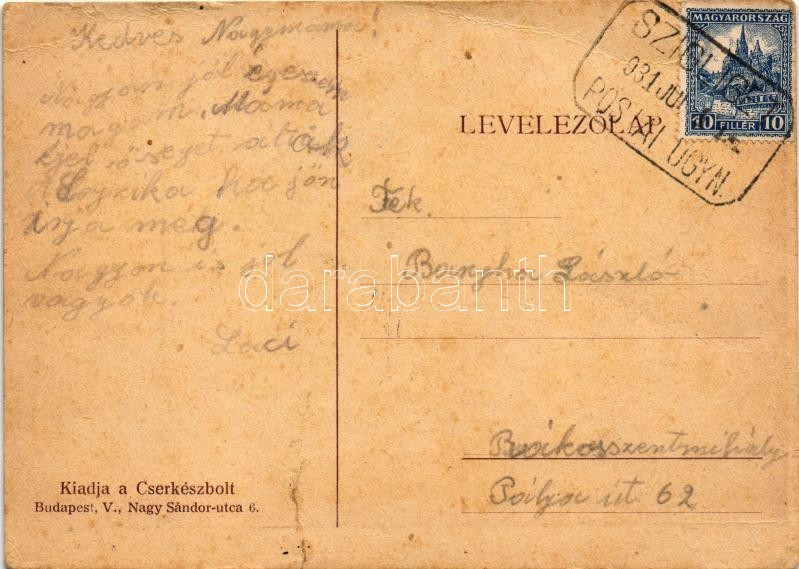 Kedves Nagymama!
Nagyon jól érzem
magam. Mama
éjel őséget áták
Lojzika ha jön
irja meg.
Nagyon is jól
vagyok
Laci
Kiadja a Cserkészbolt
Budapest, V., Nagy Sándor-utca 6.
LEVELEZŐLAP
MAGYARORSZÁG
10 FILLÉR 10
SZIGLIGET
931 JUL
POSTAI ÜGYN.
Fék.
László
Rákosszentmihály
Pálya út 62
darabanth